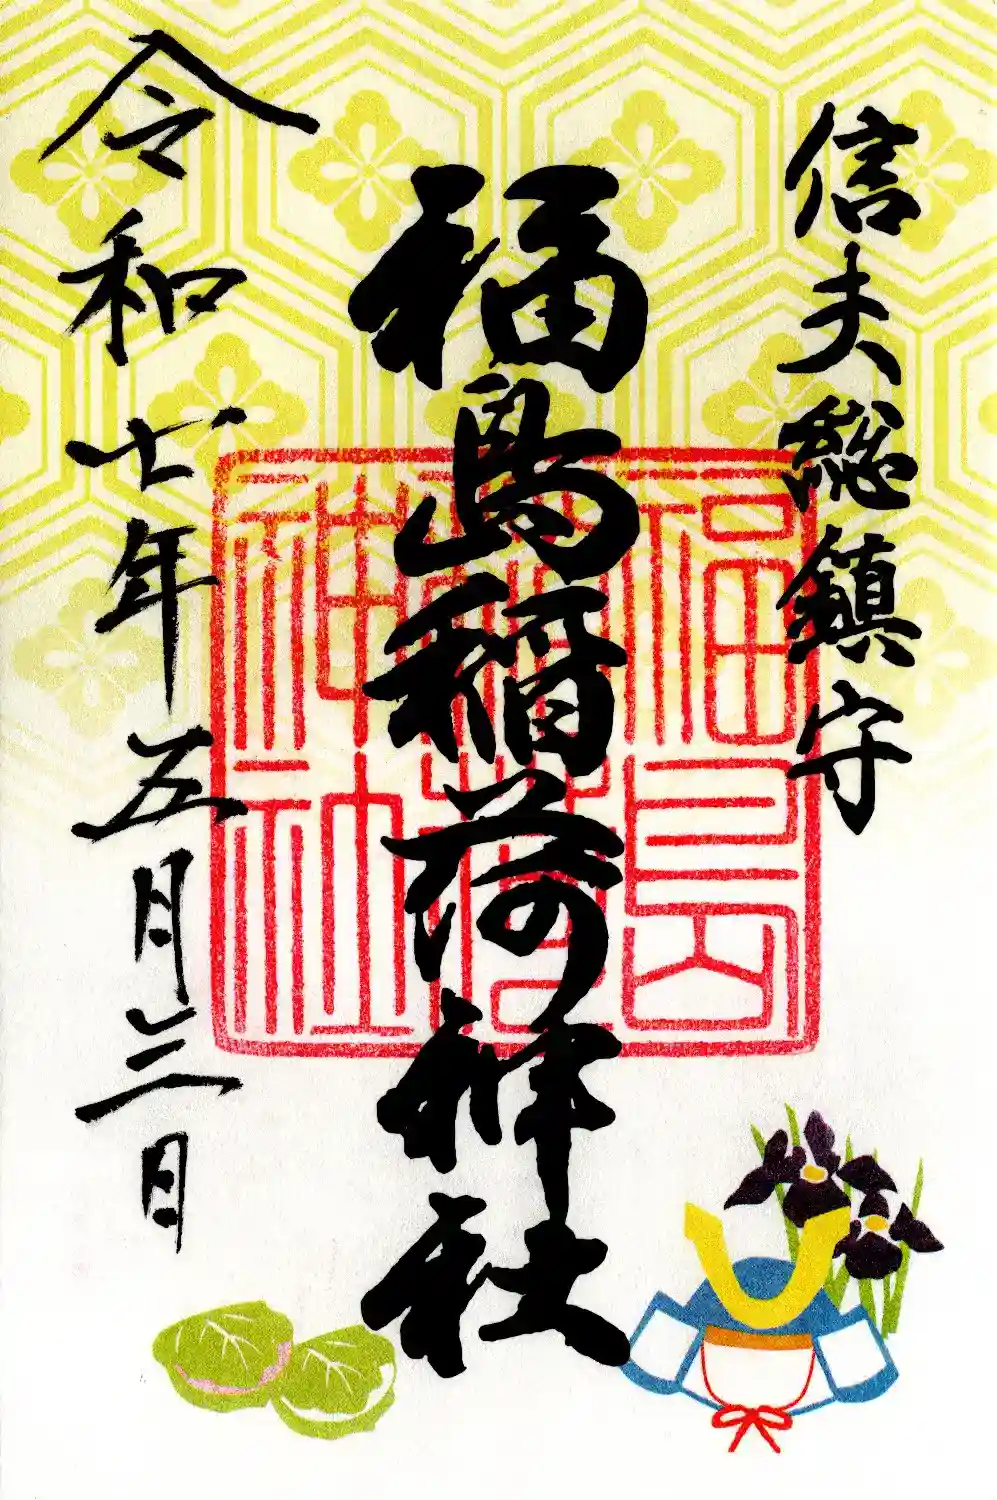 信夫総鎮守
福島稲荷神社
福島稲荷神社
令和七年五月三日